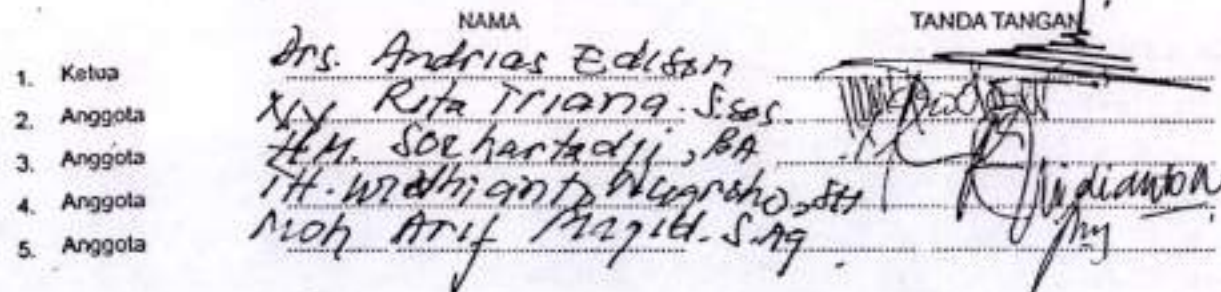 NAMA TANDA TANGAN
1. Ketua Drs. Andrias Edison
2. Anggota Rita Triana. S.sos.
3. Anggota HM. Soehartadji, BA
4. Anggota TH. Widhianto Nugroho, SH
5. Anggota Moh Arif Majid. S.Ag.